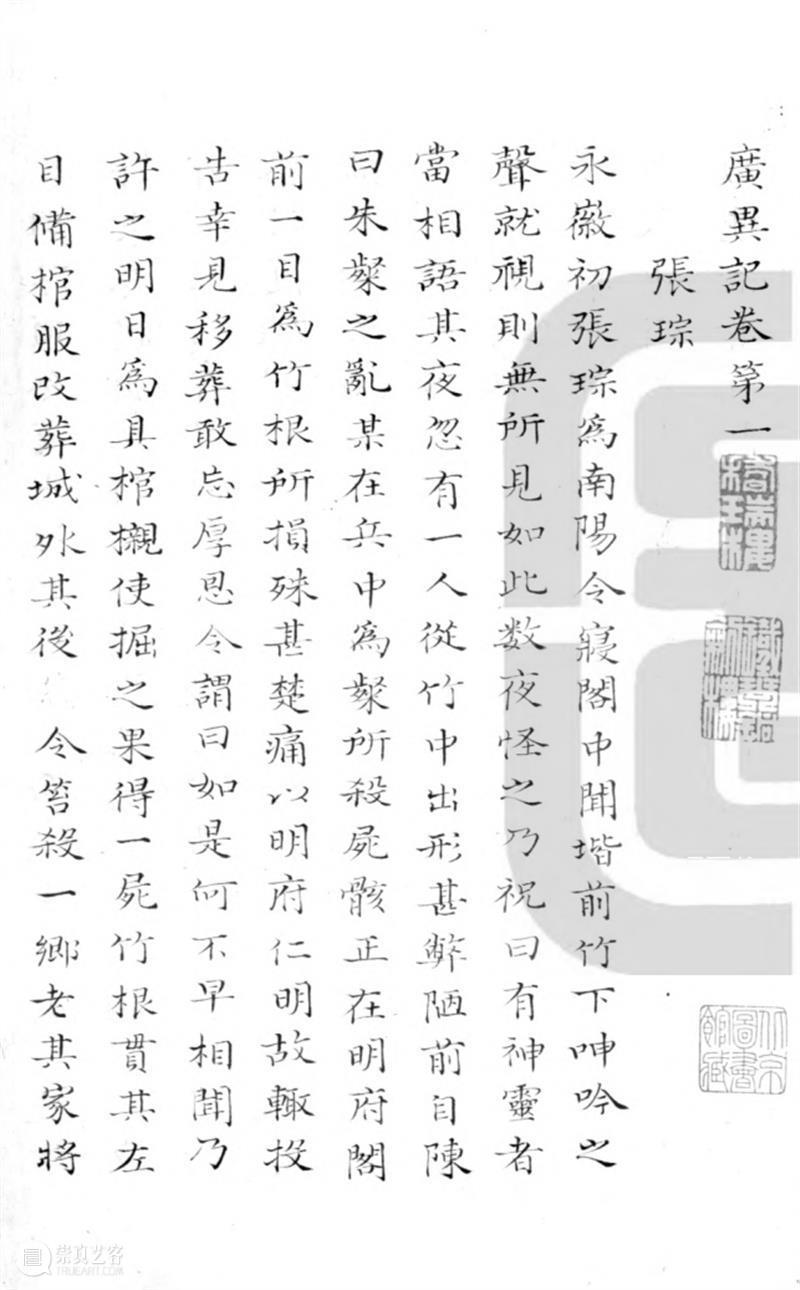 廣異記卷第一
張琮
永徽初張琮爲南陽令寢閤中聞堦前竹下呻吟之
聲就視則無所見如此数夜怪之乃祝曰有神靈者
當相語其夜忽有一人從竹中出形甚弊陋前自陳
曰朱粲之亂某在兵中爲粲所殺屍骸正在明府閤
前一目爲竹根所損殊甚楚痛以明府仁明故輙投
告幸見移葬敢忘厚恩令謂曰如是何不早相聞乃
許之明日爲具棺櫬使掘之果得一屍竹根貫其左
目備棺服改葬城外其後 令笞殺一鄉老其家將
北京圖書館藏
崇真艺客
TRUEART.COM